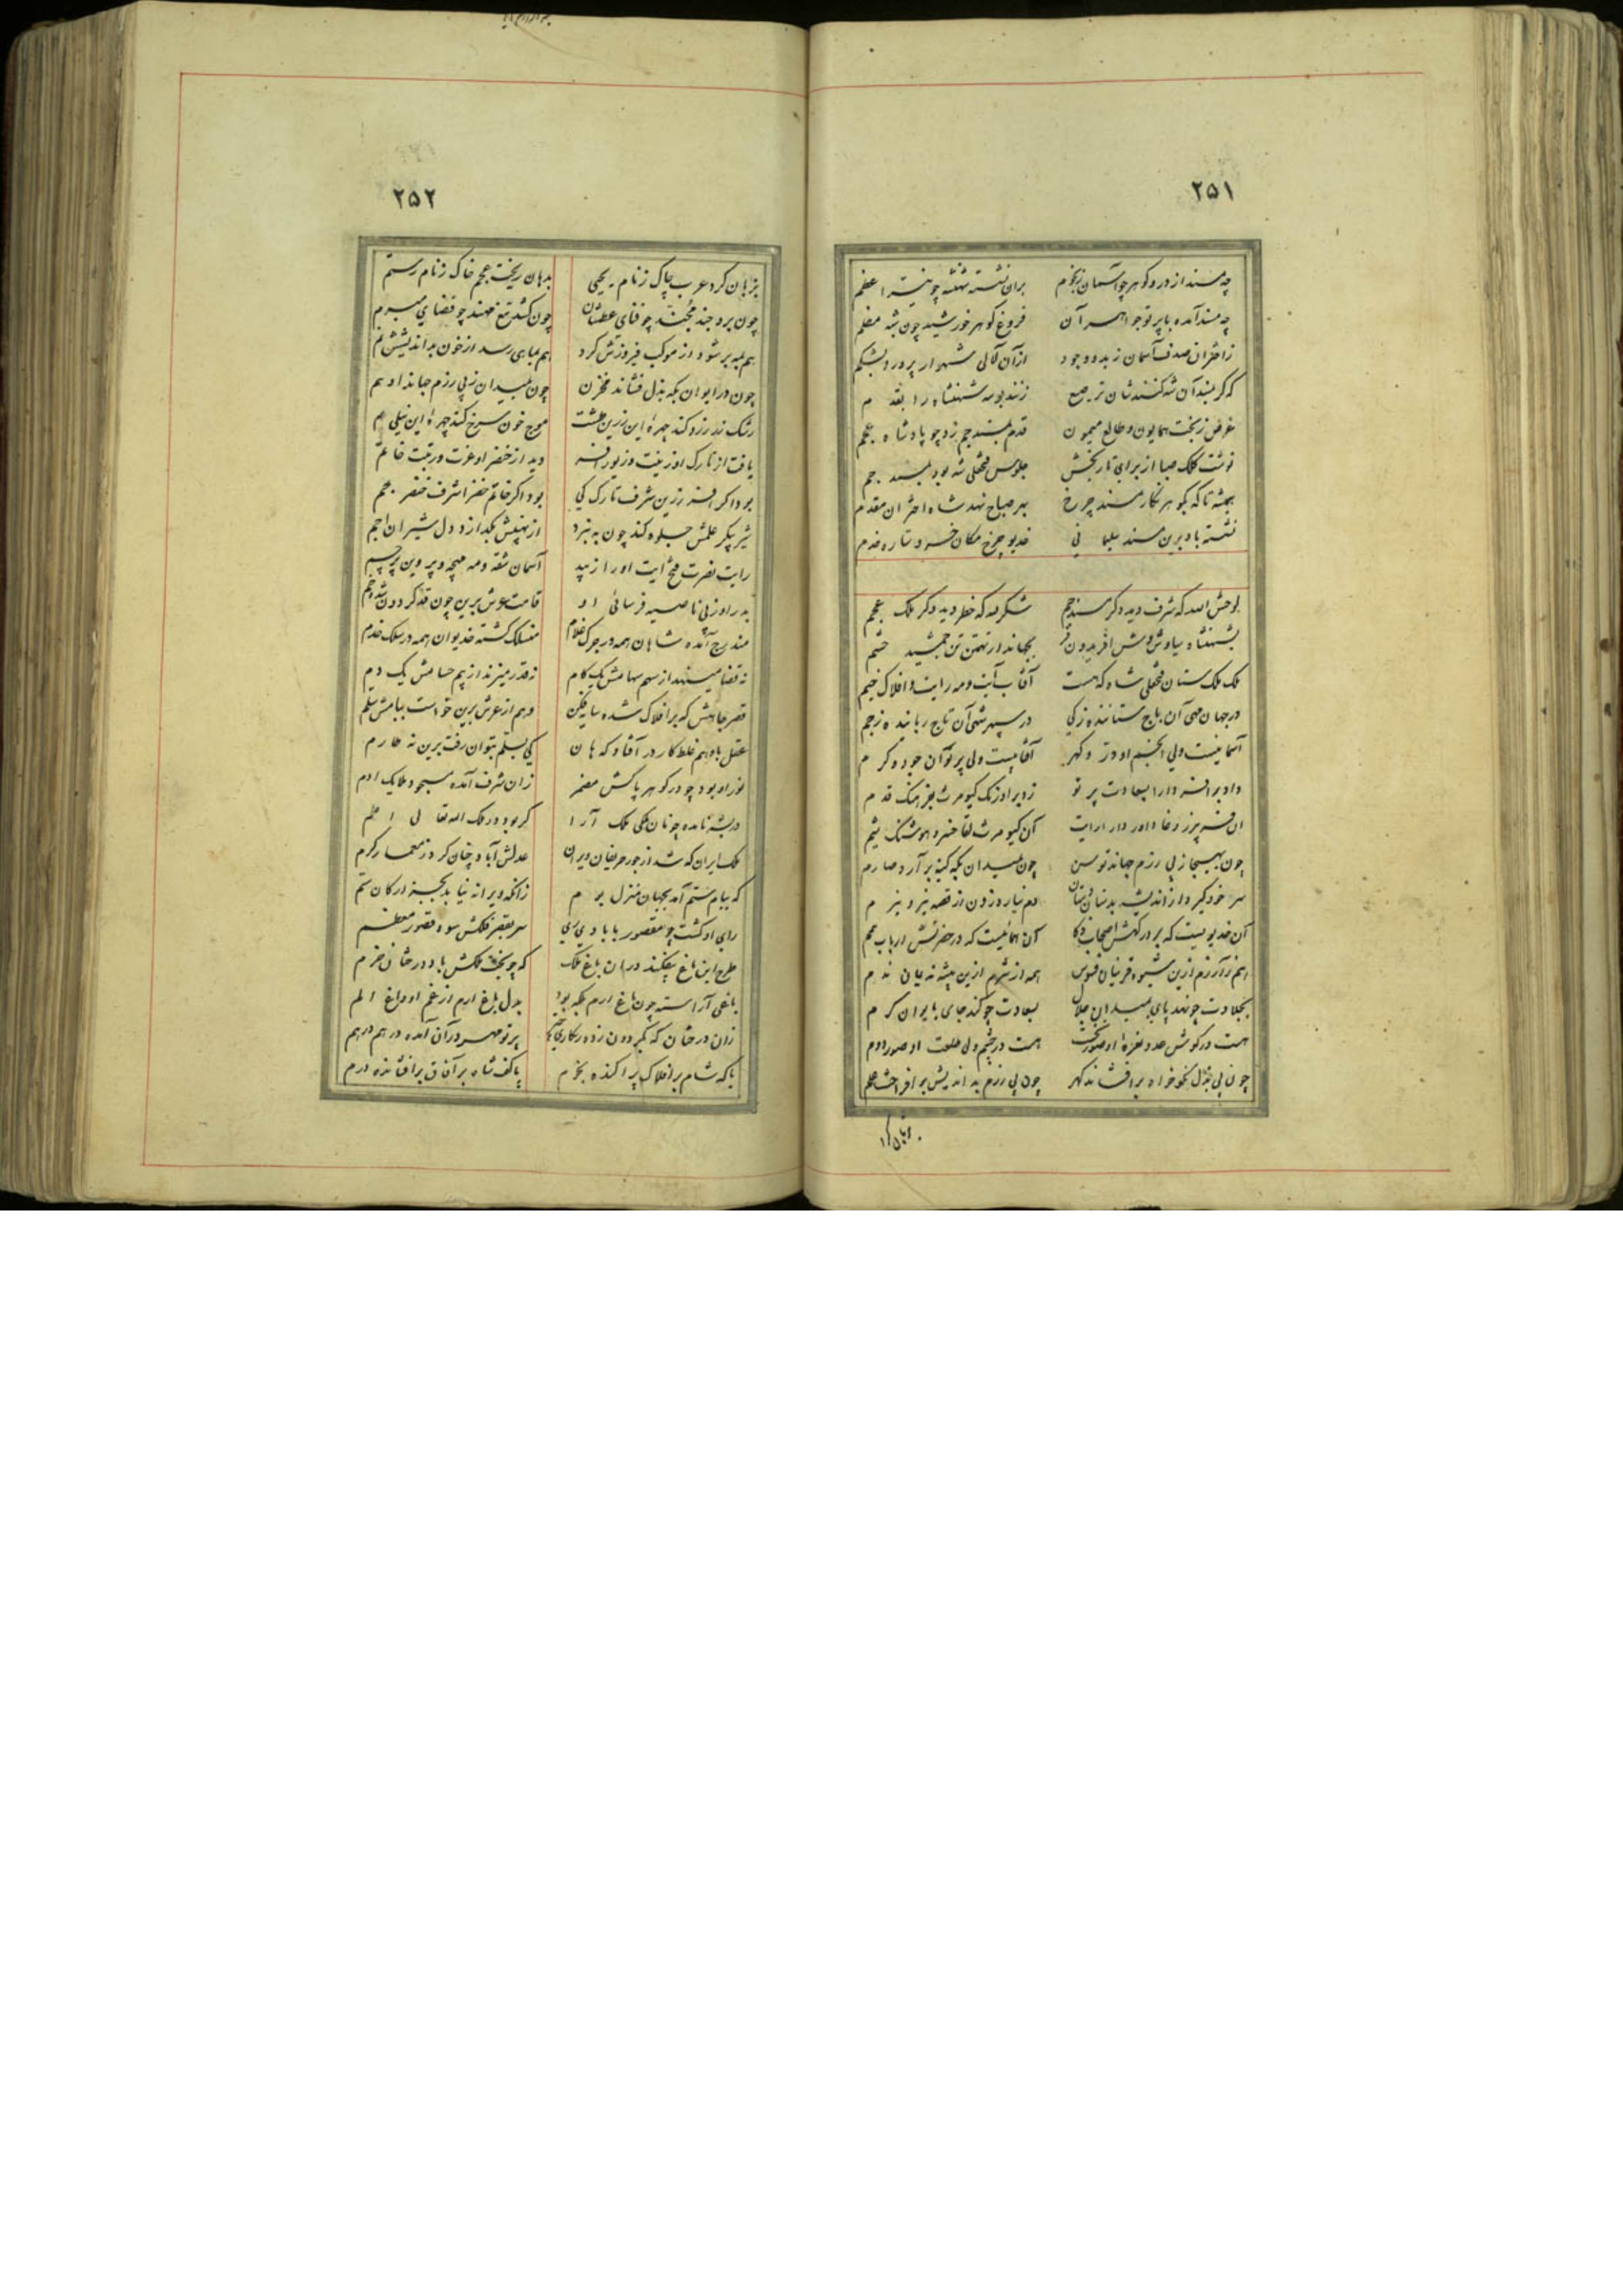 ۲۵۱
چه مسند از در و گوهر چو آسمان ز نجوم بران نشسته شهنشه چو نیر اعظم
چه مسند آمده با پرتو جواهر آن فروغ گوهر خورشید چون شبه مظلم
ز اختران صدف آسمان ز بدو وجود از آن لآلی شهوار پرورد بشکم
که گر بمسند آن شه کنندشان ترصیع زنند بوسه شهنشاه را بقدم
غرض ز بخت همایون و طالع میمون قدم بمسند جم زد چو پادشاه عجم
نوشت کلک صبا از برای تاریخش جلوس فتحعلی شه بود بمسند جم
همیشه تا که گوهر نگار مسند چرخ بهر صباح نهد شاه اختران مقدم
نشسته باد برین مسند سلیمانی خدیو چرخ مکان خسرو ستاره خدم
لوحش الله که شرف دید دگر مسند جم شکر لله که خطر دید دگر ملک عجم
بشهنشاه سیاوش وش افریدون فر بجهاندار تهمتن تن جمشید حشم
ملک ملک ستان فتحعلی شاه که هست آفتاب آیت و مه رایت و افلاک خیم
در جهان مهی آن باج ستاننده ز کی در سپهر شهی آن تاج رباینده ز جم
آسمانیست ولی انجم او در و گهر آفتابیست ولی پرتو آن جود و کرم
داد بر افسر دارا بسعادت پرتو زد بر اورنگ کیومرث بفرهنگ قدم
آن کیومرث لقا خسرو هوشنگ شیم
چون بهیجا ز پی رزم جهاند توسن چون بمیدان بگه کینه برآرد صارم
سر خود گیرد از اندیشه دم نیارد زدن از قصه
آن خدیویست که بر درگهش اصحاب ذکا آن همائیست که در حضرتش ارباب همم
همه از شرم ازین پیشه ندم
بجلادت چو نهد پای بمیدان جدال بسعادت چو کند جای بایوان کرم
هست در گوش عدو نعره او صور نخست هست در چشم ولی طلعت او صور دوم
چون پی بذل نکوخواه برافشاند گهر چون پی رزم بداندیش برافراخت علم
۲۵۲
بزبان کرد عرب چاک ز نام یحیی بدهان ریخت عجم خاک ز نام رستم
چون برد جند مجند چو فنای عطشان چون کشد تیغ مهند چو قضای مبرم
هم بمه بر شود از موکب فیروزش گرد هم بماهی رسد از خون بداندیشش نم
چون در ایوان بگه بذل فشاند مخزن چون بمیدان ز پی رزم جهاند ادهم
رشک زر زرد کند چهره این زرین طشت موج خون سرخ کند چهره این نیلی یم
یافت از تارک او زینت و زیور افسر دید از خنصر او عزت و رتبت خاتم
بود اگر افسر زرین شرف تارک کی بود اگر خاتم خضرا شرف خنصر جم
شیر پیکر علمش جلوه کند چون به نبرد از نهیبش بگدازد دل شیران اجم
رایت نصرت فتح آیت او را زیبد آسمان شقه و مه مهچه و پروین پرچم
بدر او ز پی ناصیه فرسائی او قامت عرش برین چون قد گردون شده خم
مندرج آمده شاهان همه در جرگ غلام منسلک گشته خدیوان همه در سلک خدم
نه قضا مینهد از سهم سهامش یک گام نه قدر میزند از بیم حسامش یک دم
قصر جاهش که بر افلاک شده سایه فکن وهم از عرش برین خواست ببامش سلم
عقل با وهم غلط کار در آفاد که هان کی بسلم بتوان رفت برین نه طارم
نور او بود چو در گوهر پاکش مضمر زان شرف آمده مسجود ملایک آدم
در بشر نامده چونان ملکی ملک آرا گر بود در ملک الله تعالی اعلم
ملک ایران که شد از جور حریفان ویران عدلش آباد چنان کرد ز معمار کرم
که ببام ستم آمد بجهان منزل بوم زانکه ویرانه نیابد بجز ارکان ستم
رای او گشت چو مقصور بآبادی ری سر بقصر فلکش سود قصور معظم
طرح این باغ بیفکند در آن باغ ملک که چو بخت ملکش باد درختان خرم
باغی آراسته چون باغ ارم بلکه بود بدل باغ ارم از غم او داغ الم
زان درختان که بگردون زده پرتو مهر در آن آمده درهم درهم
یا که شام بر افلاک پراکنده نجوم یا کف شاه بر آفاق برافشانده درم